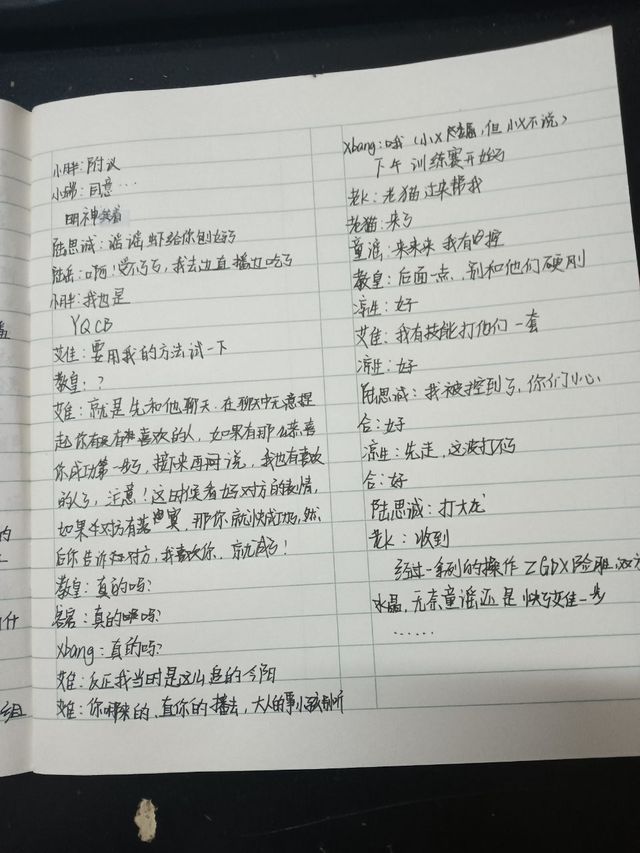 小胖：附议
小瑞：同意…
明神笑着
陆思诚：谣谣虾给你剥好了
陆岳：啊！受不了了，我去边直播边吃了
小胖：我也是
YQCB
艾佳：要用我的方法试一下
教皇：？
艾佳：就是先和他聊天．在聊天中无意提
起你有没有喜欢的人，如果有那么恭喜
你成功第一步了，接下来再问说，我也有喜欢
的人了，注意！这时候看好对方的表情，
如果对方有落寞，那你就快成功了，然
后你告诉对方，我喜欢你．就成了！
教皇：真的吗？
客客：真的吗？
xbang：真的吗？
艾佳：反正我当时是这么追的今阳
艾佳：你哪来的、直你的播去，大人的事小孩别听
xbang：哦（小X，但小X不说）
下午训练赛开始了
老K：老猫过来帮我
老猫：来了
童谣：来来来 我有控
教皇：后面一点，别和他们硬刚
凉生：好
艾佳：我有技能打他们一套
凉生：好
陆思诚：我被控到了，你们小心
合：好
凉生：先走，这波打不了
合：好
陆思诚：打大龙
老K：收到
经过一系列的操作ZGDX险胜，双方
水晶，无奈童谣还是快了艾佳一步
……
的
什
组